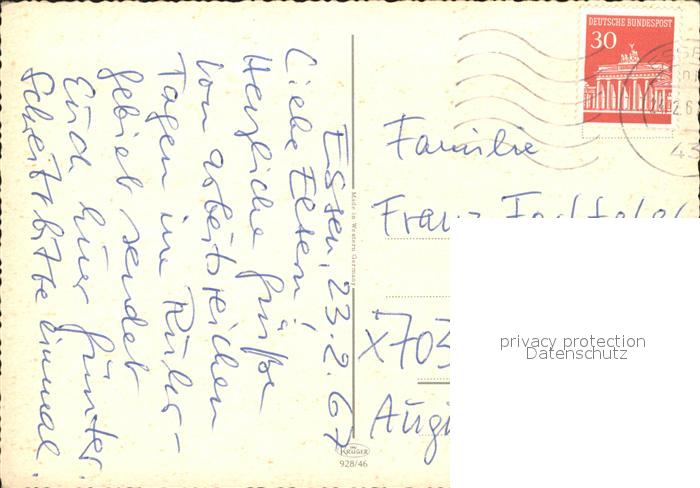 Essen, 23.2.67
Liebe Eltern!
Herzliche Grüße
von arbeitsreichen
Tagen im Ruhr-
gebiet sendet
Euch Euer Günter.
Schreibt bitte einmal.
Made in Western Germany
KRÜGER
928/46
DEUTSCHE BUNDESPOST
30
43
Familie
Franz
X703
privacy protection
Datenschutz